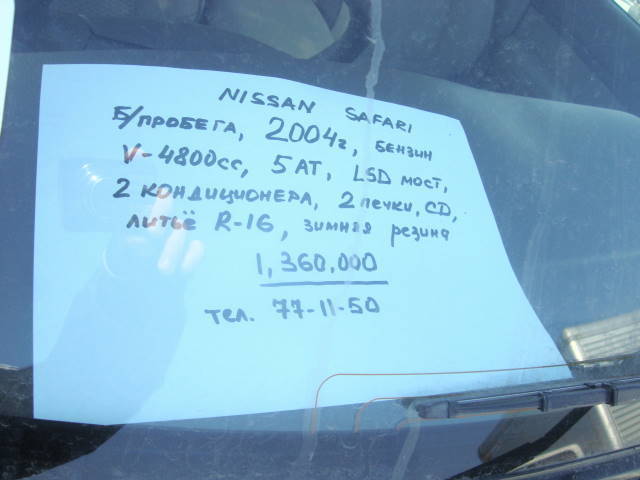 NISSAN SAFARI
Б/ПРОБЕГА, 2004г, БЕНЗИН
V-4800cc, 5AT, LSD мост,
2 КОНДИЦИОНЕРА, 2 печки, CD,
литьё R-16, зимняя резина
1,360,000
тел. 77-11-50